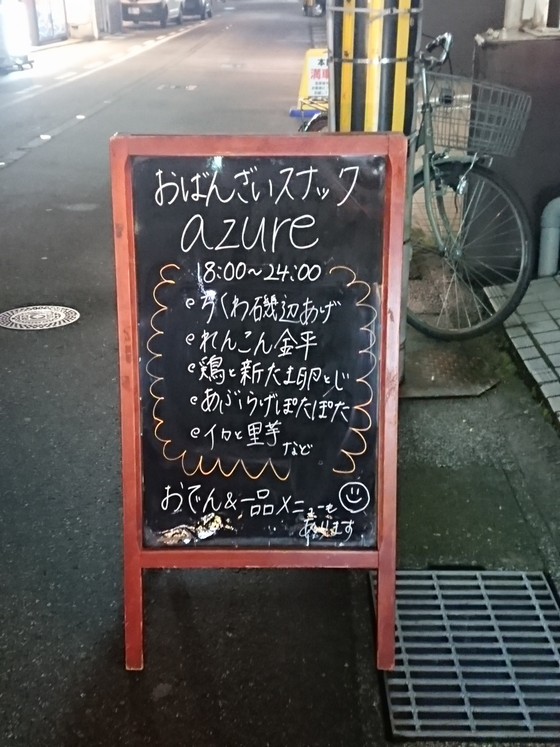 おばんざいスナック
azure
18:00~24:00
ちくわ磯辺あげ
れんこん金平
鶏と新たま卵とじ
あぶらげぽたぽた
イカと里芋
など
おでん&一品メニューも
あります